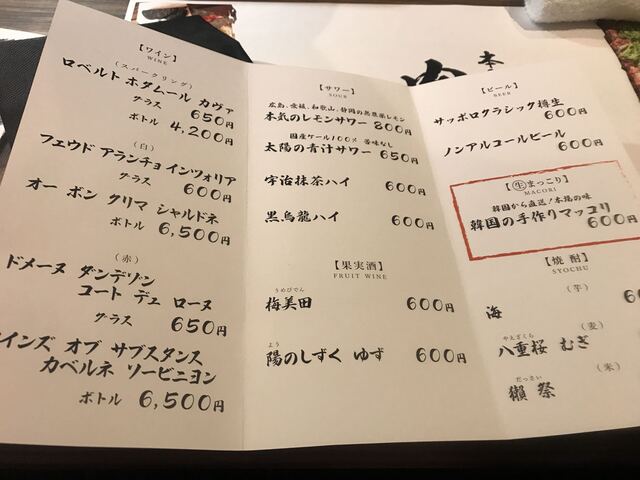 【ワイン】
WINE
(スパークリング)
ロベルト ホダムール カヴァ
グラス 650円
ボトル 4,200円
(白)
フェウド アランチョ インツォリア
グラス 600円
オー ボン クリマ シャルドネ
ボトル 6,500円
(赤)
ドメーヌ ダンデゾン
コート デュ ローヌ
グラス 650円
インズ オブ サブスタンス
カベルネ ソービニヨン
ボトル 6,500円
【サワー】
SOUR
広島、愛媛、和歌山、静岡の無農薬レモン
本気のレモンサワー 800円
国産ケール100% 苦味なし
太陽の青汁サワー 650円
宇治抹茶ハイ 600円
黒烏龍ハイ 600円
【果実酒】
FRUIT WINE
うめびでん
梅美田 600円
よう
陽のしずく ゆず 600円
【ビール】
BEER
サッポロクラシック樽生
600円
ノンアルコールビール
600円
【生まっこり】
MACORI
韓国から直送!本場の味
韓国の手作りマッコリ
600円
【焼酎】
SYOCHU
(芋)
海 60
(麦)
やえざくら
八重桜 むぎ
(米)
だっさい
獺祭